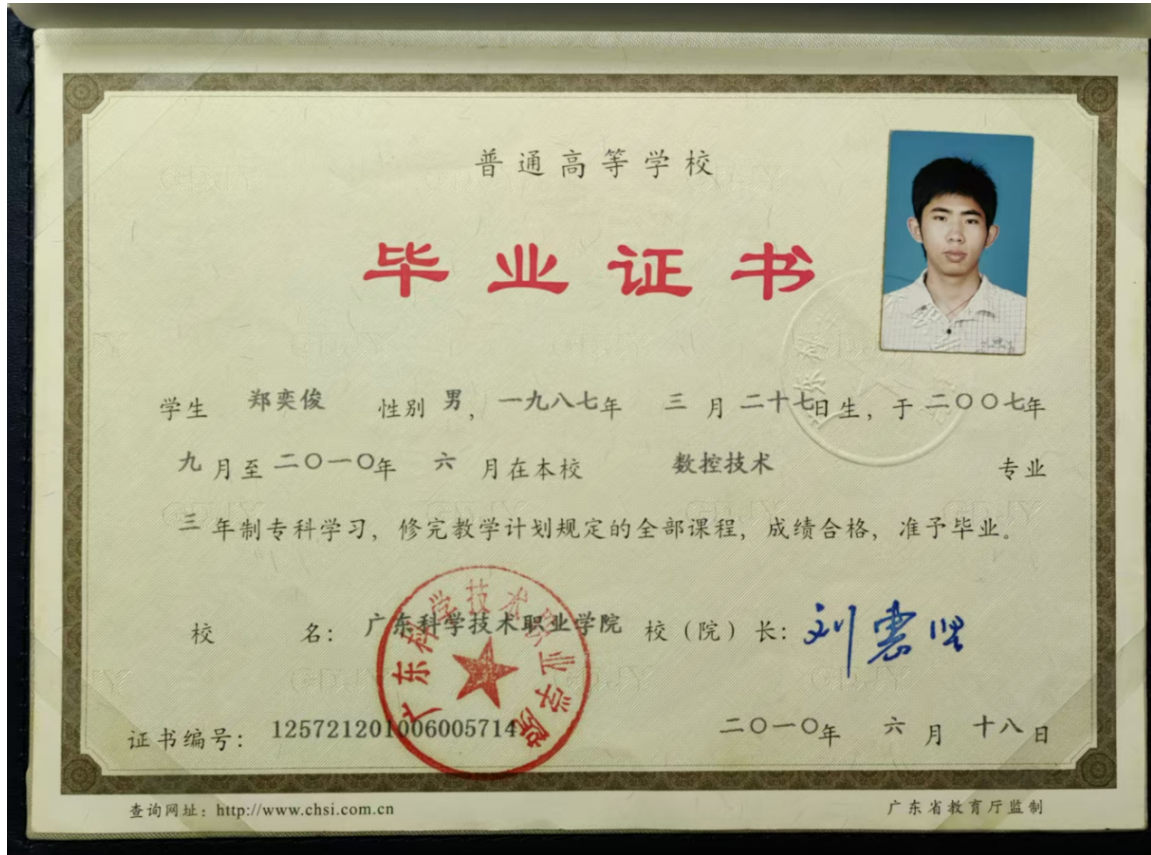 普通高等学校
毕业证书
学生 郑奕俊 性别 男，一九八七年 三月二十七日生，于二〇〇七年
九月至二〇一〇年 六月在本校 数控技术 专业
三年制专科学习，修完教学计划规定的全部课程，成绩合格，准予毕业。
校 名：广东科学技术职业学院 校（院）长：刘
广东科学技术职业学院
证书编号：125721201006005714 二〇一〇年 六月 十八日
查询网址：http://www.chsi.com.cn 广东省教育厅监制